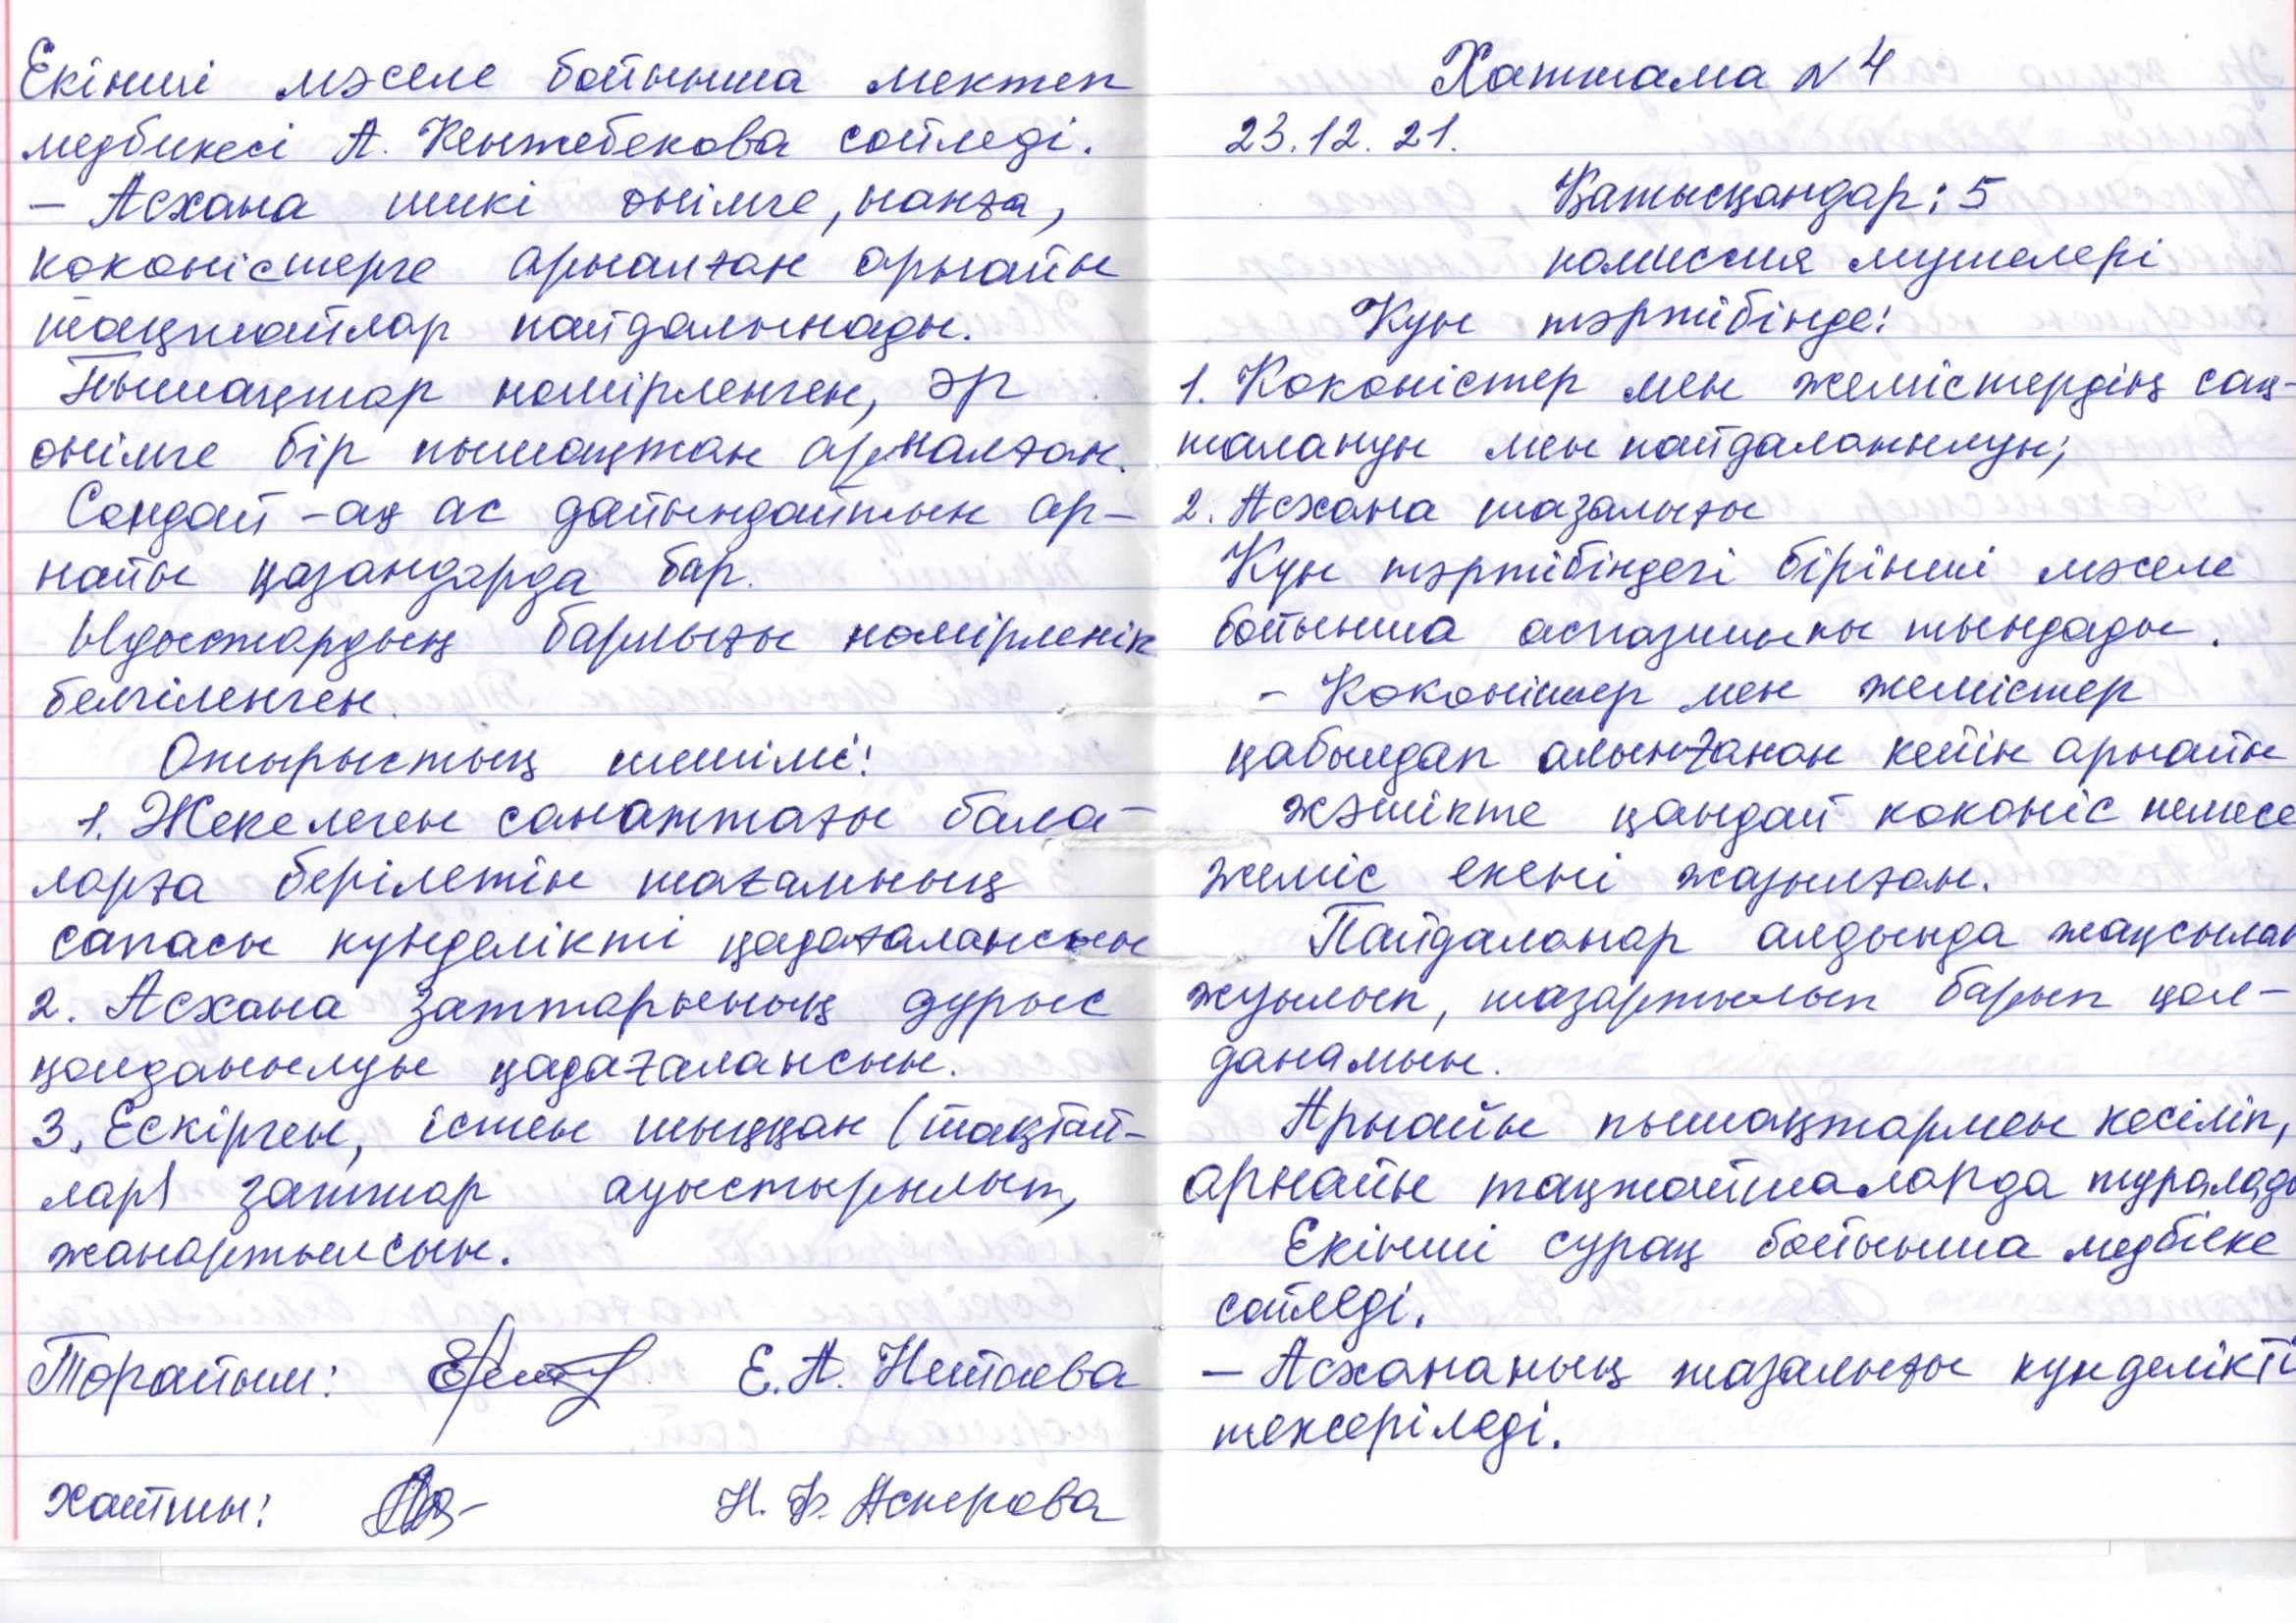 Екінші мәселе бойынша мектеп
медбикесі А. Кенжебекова сөйледі.
– Асхана шикі өнімге, нанға,
көкөністерге арналған арнайы
тақтайлар пайдалынады.
Пышақтар нөмірленген, әр
өнімге бір пышақтан арналған.
Сондай-ақ ас дайындайтын ар-
найы қазандарда бар.
Ыдыстардың барлығы нөмірленік
белгіленген.
Отырыстың шешімі:
1. Жекелеген санаттағы бала-
ларға берілетін тағамның
сапасы күнделікті қадағалансын
2. Асхана заттарының дұрыс
қолданылуы қадағалансын.
3. Ескірген, істен шыққан (тақтай-
лар) заттар ауыстырылып,
жаңартылсын.
Төрайым: Е. А. Нитаева
Хатшы: Н. Ф. Аскерова
Хаттама №4
23.12.21.
Қатысқандар: 5
комиссия мүшелері
Күн тәртібінде:
1. Көкөністер мен жемістердің сақ-
талануы мен пайдаланылуы;
2. Асхана тазалығы
Күн тәртібіндегі бірінші мәселе
бойынша аспазшыны тыңдады.
– Көкөністер мен жемістер
қабылдап алынғанан кейін арнайы
жәшікте қандай көкөніс немесе
жеміс екені жазылған.
Пайдаланар алдында жақсылап
жуылып, тазартылып барып қол-
данамын.
Арнайы пышақтармен кесіліп,
арнайы тақтайшаларда туралады
Екінші сұрақ бойынша медбіеке
сөйледі.
– Асхананың тазалығы күнделікті
тексеріледі.